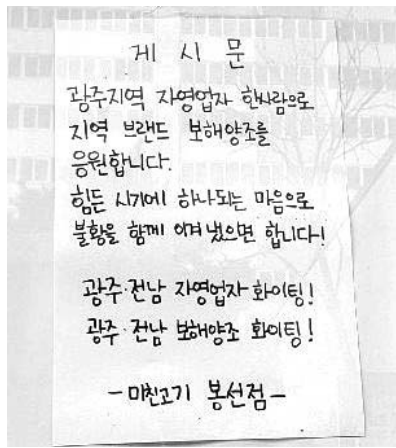 게 시 문
광주지역 자영업자 한사람으로
지역 브랜드 보해양조를
응원합니다.
힘든 시기에 하나되는 마음으로
불황을 함께 이겨 냈으면 합니다!
광주·전남 자영업자 화이팅!
광주·전남 보해양조 화이팅!
- 미친고기 봉선점 -